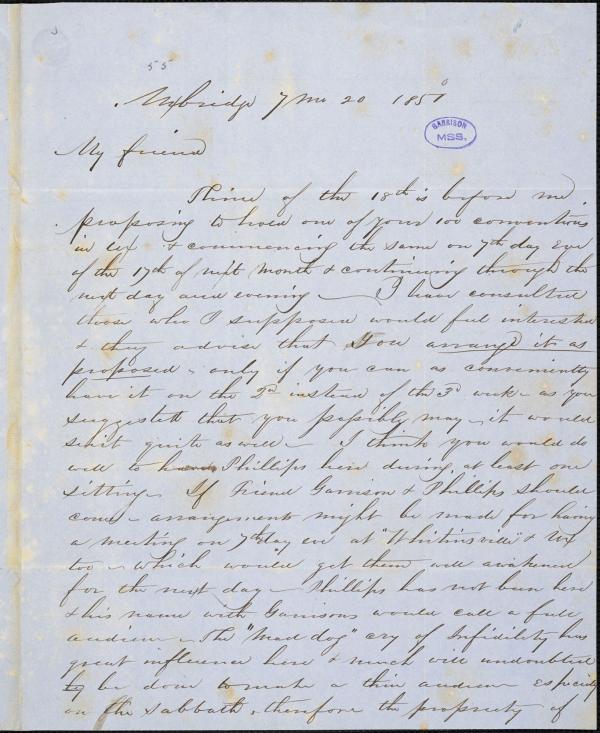 55
Uxbridge 7 Mo 20 1850
GARRISON
MSS.
My friend
Thine of the 18th is before me
proposing to hold one of your 100 conventions
in Ux & commencing the same on 7th day Eve
of the 17th of next Month & continuing through the
next day and evening — I have consulted
those who I supposed would feel interested
& they advise that You arrange it as
proposed, only if you can as conveniently
have it on the 2d instead of the 3d week as you
suggested that you possibly may — it would
suit quite as well — I think you would do
well to have Phillips here during, at least one
sitting — If Friend Garrison & Phillips should
come — arrangements might be made for having
a meeting on 7th day eve at "Whitinsville" & Ux
too — which would get them well awakened
for the next day — Phillips has not been here
& his name with Garrisons would call a full
audience — The "Mad dog" cry of Infidility has
great influence here & much will undoubted
ly be done to make a thin audience especially
on the Sabbath, therefore the propriety of